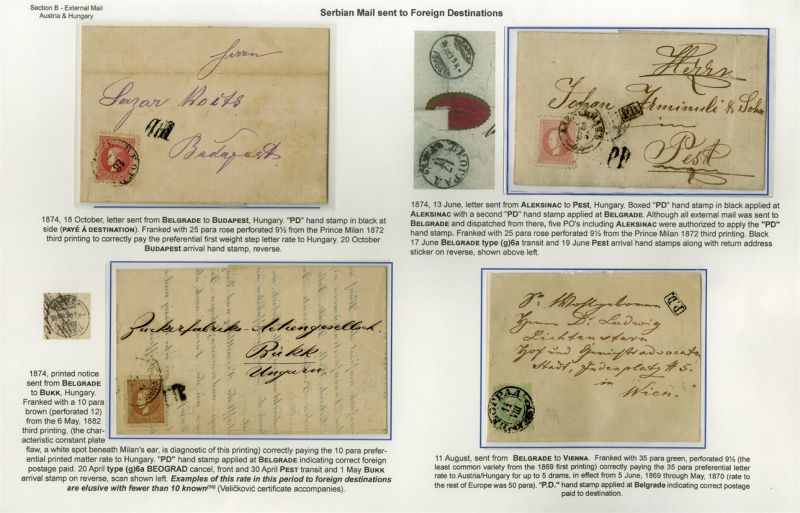 Section B - External Mail
Austria & Hungary
Serbian Mail sent to Foreign Destinations
Herrn
Lazar
Budapest
PD
1874, 18 October, letter sent from BELGRADE to BUDAPEST, Hungary. "PD" hand stamp in black at
side (PAYÉ Á DESTINATION). Franked with 25 para rose perforated 9½ from the Prince Milan 1872
third printing to correctly pay the preferential first weight step letter rate to Hungary. 20 October
BUDAPEST arrival hand stamp, reverse.
Herrn
Johan & Sohn
Pest
PD
PD
БЕОГРАД
1874, 13 June, letter sent from ALEKSINAC to PEST, Hungary. Boxed "PD" hand stamp in black applied at
ALEKSINAC with a second "PD" hand stamp applied at BELGRADE. Although all external mail was sent to
BELGRADE and dispatched from there, five PO's including ALEKSINAC were authorized to apply the "PD"
hand stamp. Franked with 25 para rose perforated 9½ from the Prince Milan 1872 third printing. Black
17 June BELGRADE type (g)6a transit and 19 June PEST arrival hand stamps along with return address
sticker on reverse, shown above left.
Zuckerfabriks-Actiengesellsch.
Bükk
Ungarn.
1874, printed notice
sent from BELGRADE
to BUKK, Hungary.
Franked with a 10 para
brown (perforated 12)
from the 6 May, 1882
third printing, (the char-
acteristic constant plate
flaw, a white spot beneath Milan's ear, is diagnostic of this printing) correctly paying the 10 para prefer-
ential printed matter rate to Hungary. "PD" hand stamp applied at BELGRADE indicating correct foreign
postage paid. 20 April type (g)6a BEOGRAD cancel, front and 30 April PEST transit and 1 May BUKK
arrival stamp on reverse, scan shown left. Examples of this rate in this period to foreign destinations
are elusive with fewer than 10 known(10) (Veličković certificate accompanies).
Sr Wohlgeboren
Herrn Dr. Ludwig
Lichtenstern
Hof und Gerichtsadvocate
Stadt, Judenplatz # 5.
in
Wien.
P.D.
БЕОГРАД
11 August, sent from BELGRADE to VIENNA. Franked with 35 para green, perforated 9½ (the
least common variety from the 1869 first printing) correctly paying the 35 para preferential letter
rate to Austria/Hungary for up to 5 drams, in effect from 5 June, 1869 through May, 1870 (rate to
the rest of Europe was 50 para). "P.D." hand stamp applied at Belgrade indicating correct postage
paid to destination.